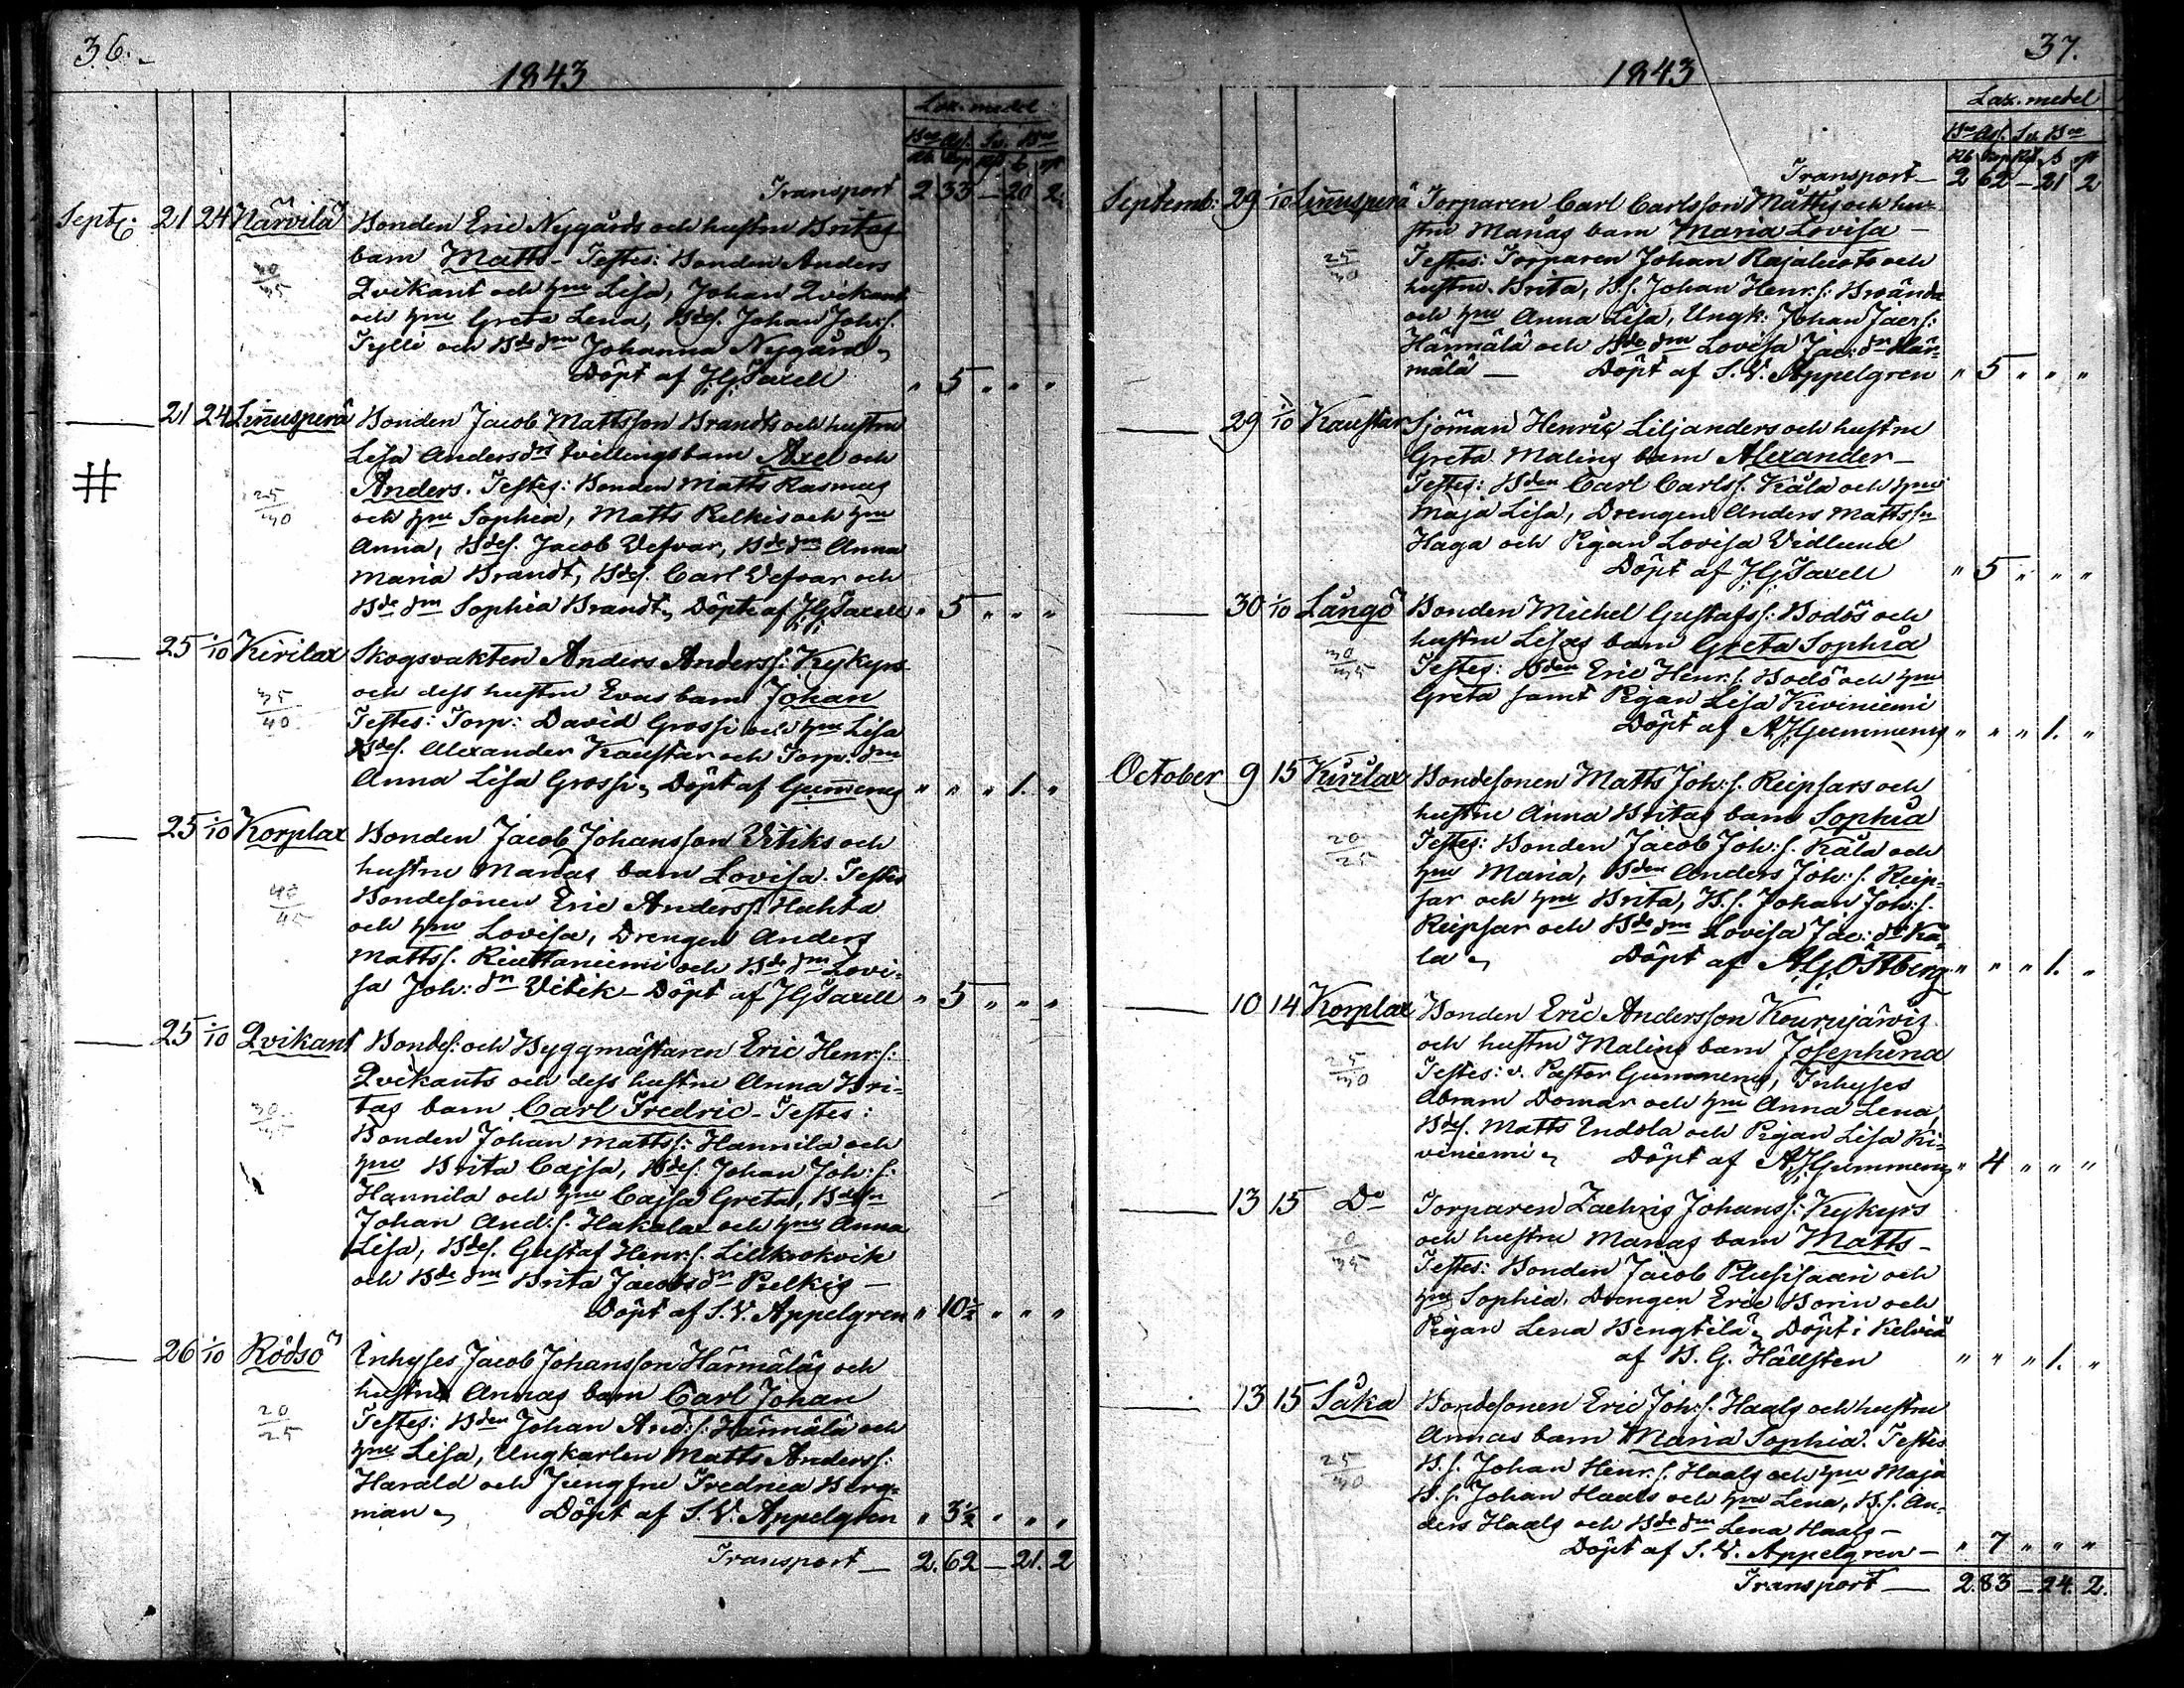 36.
1843
Lax. medel
Bco Ass. Sv. Bco
Rb Kop Rd. s. rst
Transport 2 33 — 20. 2.
Septr. 21 24 Närvilä Bonden Eric Nygårds och hustru Britas
barn Matts – Testes: Bonden Anders
30/35
Qvikant och hu Lisa, Johan Qvikant
och hu Greta Lena, Bdes. Johan Joh: s.
Tylli och Bdedm Johanna Nygård,
Döpt af JHTaxell " 5 " " "
21 24 Linusperä Bonden Jacob Mattsson Brandts och hustru
Lisa Andersdr tvillingsbarn Axel och
#
25/30
Anders. Testes: Bonden Matts Rasmus
och hu Sophia, Matts Pelkis och hu
Anna, Bdes. Jacob Vesvar, Bdedm Anna
Maria Brandt, Bdes. Carl Vesvar och
Bdedm Sophia Brandt, Döpte af JHTaxell " 5 " " "
25 1/10 Kirilax Skogsvakten Anders Anderss: Kykyrs
och dess hustru Evas barn Johan
35/40
Testes: Torp: David Grossi och hu Lisa
Bdes. Alexander Kaustar och Torp: dm
Anna Lisa Grossi, Döpt af Gum̄erus " " " 1. "
25 1/10 Korplax Bonden Jacob Johansson Vitiks och
hustru Marias barn Lovisa. Testes
40/45
Bondesonen Eric Anderss Huhta
och hu Lovisa, Drengen Anders
Mattss. Riuttaniemi och Bdedm Lovi-
sa Joh: dr Vitik – Döpt af JHTaxell " 5 " " "
25 1/10 Qvikant Bondes: och Byggmästaren Eric Henr: s:
Qvikants och dess hustru Anna Bri-
30/35
tas barn Carl Fredric – Testes:
Bonden Johan Mattss: Hannila och
hu Brita Cajsa, Bdes: Johan Joh: s:
Hannila och hu Cajsa Greta, Bdesn
Johan And: s. Hakalax och hu Anna
Lisa, Bdes. Gustaf Henr: s. Lillkrokvik
och Bdedm Brita Jacobsdr Pelkis –
Döpt af S. V. Appelgren " 10½ " " "
26 1/10 Rödsö Inhyses Jacob Johansson Härmäläs och
hustru Annas barn Carl Johan
20/25
Testes: Bden Johan And: s: Härmälä och
hu Lisa, Ungkarlen Matts Anderss:
Harald och Jungfru Fredrica Berg-
man, Döpt af S. V. Appelgren " 3½ " " "
Transport — 2. 62 — 21. 2
37.
1843
Lax. medel
Bco Ass. Sv. Bco
Rb Kop Rd s rst
Transport – 2 62 – 21 2
Septemb: 29 1/10 Linusperä Torparen Carl Carlsson Mattus och hu-
stru Marias barn Maria Lovisa –
25/30
Testes: Torparen Johan Rajaluoto och
hustru Brita, B. s. Johan Henr: s: Brända
och hu Anna Lisa, Ungk: Johan Jacrs:
Härmälä och Bdedm Lovisa Jac: dr Här-
mälä – Döpt af S. V. Appelgren " 5 " " "
29 1/10 Kaustar Sjöman Henric Liljanders och hustru
Greta Malins barn Alexander –
Testes: Bden Carl Carlss. Kåla och hu
Maja Lisa, Drengen Anders Mattssn
Haga och Pigan Lovisa Vedlund
Döpt af JHTaxell " 5 " " "
30 1/10 Långö Bonden Michel Gustafs s: Bodös och
hustru Lisas barn Greta Sophia
30/35
Testes: Bden Eric Henr: s. Bodö och hu
Greta samt Pigan Lisa Kiviniemi
Döpt af AHGummerus " " " 1. "
October 9 15 Kirilax Bondesonen Matts Joh: s. Reipsars och
hustru Anna Britas barn Sophia
20/25
Testes: Bonden Jacob Joh: s. Kåla och
hu Maria, Bden Anders Joh: s. Reip-
sar och hu Brita, B. s. Johan Joh: s.
Reipsar och Bdedm Lovisa Jac: dr Kå-
la, Döpt af AGÖstberg " " " 1. "
10 14 Korplax Bonden Eric Andersson Kourujärvis
och hustru Malins barn Josephina
25/30
Testes: v. Pastor Gummerus, Inhyses
Abram Domar och hu Anna Lena,
Bdes. Matts Indola och Pigan Lisa Ki-
viniemi, Döpt af AHGummerus " 4 " " "
13 15 Do Torparen Zachris Johanss: Kykyrs
och hustru Marias barn Matts –
30/35
Testes: Bonden Jacob Plusisaari och
hu Sophia, Drengen Eric Borin och
Pigan Lena Bengtilä, Döpt i Kelviå
af B. G. Hällsten " " " 1. "
13 15 Såka Bondesonen Eric Joh: s. Haals och hustru
Annas barn Maria Sophia. Testes
25/30
B. s. Johan Henr: s. Haals och hu Maja
B. s. Johan Haals och hu Lena, B. s. An-
ders Haals och Bdedm Lena Haals –
Döpt af S. V. Appelgren – " 7 " " "
Transport — 2. 83 – 24. 2.